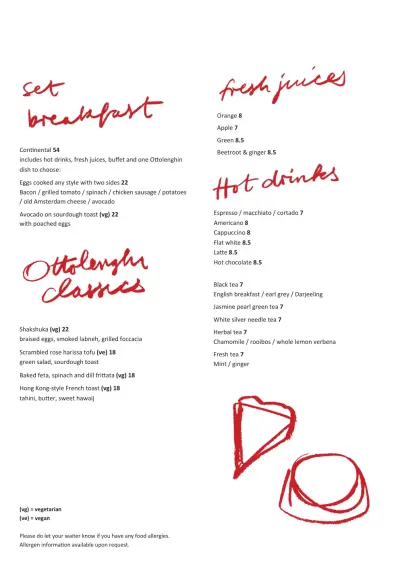 set
breakfast
Continental 54
includes hot drinks, fresh juices, buffet and one Ottolenghin
dish to choose:
Eggs cooked any style with two sides 22
Bacon / grilled tomato / spinach / chicken sausage / potatoes
/ old Amsterdam cheese / avocado
Avocado on sourdough toast (vg) 22
with poached eggs
Ottolenghi
classics
Shakshuka (vg) 22
braised eggs, smoked labneh, grilled foccacia
Scrambled rose harissa tofu (ve) 18
green salad, sourdough toast
Baked feta, spinach and dill frittata (vg) 18
Hong Kong-style French toast (vg) 18
tahini, butter, sweet hawaij
(vg) = vegetarian
(ve) = vegan
Please do let your waiter know if you have any food allergies.
Allergen information available upon request.
fresh juices
Orange 8
Apple 7
Green 8.5
Beetroot & ginger 8.5
Hot drinks
Espresso / macchiato / cortado 7
Americano 8
Cappuccino 8
Flat white 8.5
Latte 8.5
Hot chocolate 8.5
Black tea 7
English breakfast / earl grey / Darjeeling
Jasmine pearl green tea 7
White silver needle tea 7
Herbal tea 7
Chamomile / rooibos / whole lemon verbena
Fresh tea 7
Mint / ginger